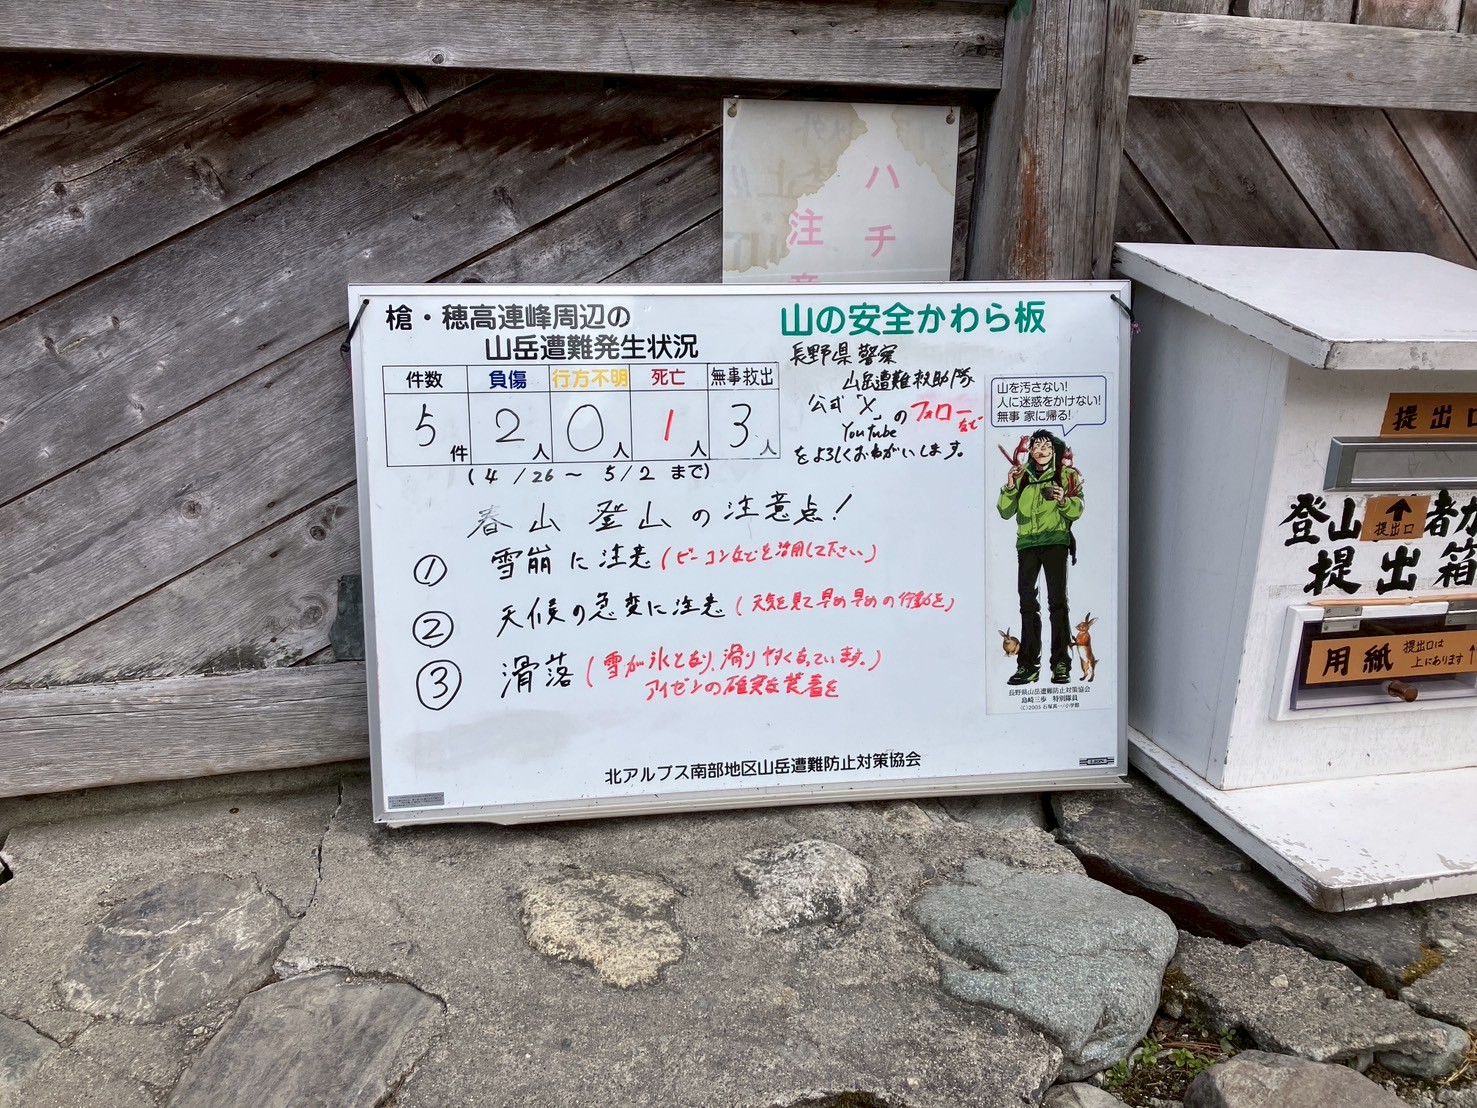 ハチ
注意
槍・穂高連峰周辺の
山岳遭難発生状況
件数 負傷 行方不明 死亡 無事救出
5件 2人 0人 1人 3人
(4/26～5/2まで)
春山登山の注意点!
① 雪崩に注意(ビーコンなどを活用して下さい)
② 天候の急変に注意(天気を見て早め早めの行動を)
③ 滑落(雪が氷となり、滑りやすくなっています。)
アイゼンの確実な装着を
北アルプス南部地区山岳遭難防止対策協会
山の安全かわら板
長野県警察
山岳遭難救助隊
公式「X」のフォローなど
YouTube
をよろしくおねがいします。
山を汚さない!
人に迷惑をかけない!
無事 家に帰る!
長野県山岳遭難防止対策協会
島崎三歩 特別隊員
(C)2005 石塚真一/小学館
提出口
登山者カ
提出口
提出箱
用紙 提出口は
上にあります↑